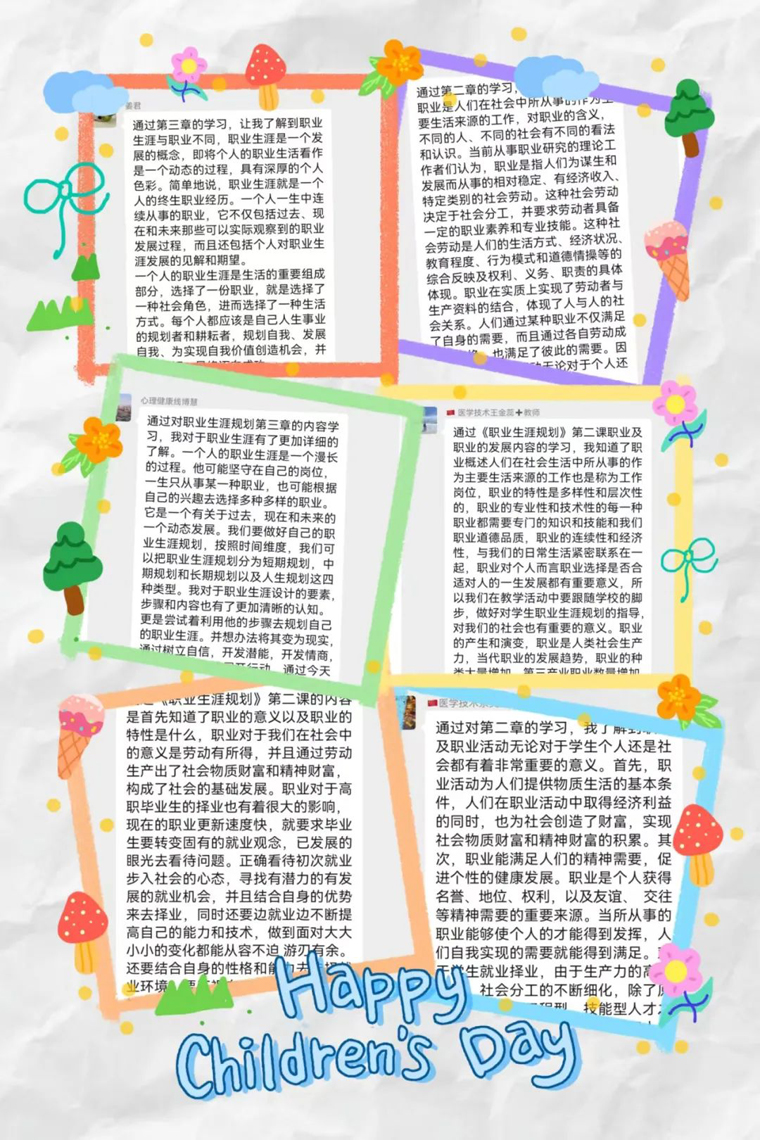 姜君
通过第三章的学习，让我了解到职业
生涯与职业不同，职业生涯是一个发
展的概念，即将个人的职业生活看作
是一个动态的过程，具有深厚的个人
色彩。简单地说，职业生涯就是一个
人的终生职业经历。一个人一生中连
续从事的职业，它不仅包括过去、现
在和未来那些可以实际观察到的职业
发展过程，而且还包括个人对职业生
涯发展的见解和期望。
一个人的职业生涯是生活的重要组成
部分，选择了一份职业，就是选择了
一种社会角色，进而选择了一种生活
方式。每个人都应该是自己人生事业
的规划者和耕耘者，规划自我、发展
自我、为实现自我价值创造机会，并
通过第二章的学习，
职业是人们在社会中所从事的作为主
要生活来源的工作，对职业的含义，
不同的人、不同的社会有不同的看法
和认识。当前从事职业研究的理论工
作者们认为，职业是指人们为谋生和
发展而从事的相对稳定、有经济收入、
特定类别的社会劳动。这种社会劳动
决定于社会分工，并要求劳动者具备
一定的职业素养和专业技能。这种社
会劳动是人们的生活方式、经济状况、
教育程度、行为模式和道德情操等的
综合反映及权利、义务、职责的具体
体现。职业在实质上实现了劳动者与
生产资料的结合，体现了人与人的社
会关系。人们通过某种职业不仅满足
了自身的需要，而且通过各自劳动成
也满足了彼此的需要。因
动无论对于个人还
心理健康线博慧
通过对职业生涯规划第三章的内容学
习，我对于职业生涯有了更加详细的
了解。一个人的职业生涯是一个漫长
的过程。他可能坚守在自己的岗位，
一生只从事某一种职业，也可能根据
自己的兴趣去选择多种多样的职业。
它是一个有关于过去，现在和未来的
一个动态发展。我们要做好自己的职
业生涯规划，按照时间维度，我们可
以把职业生涯规划分为短期规划，中
期规划和长期规划以及人生规划这四
种类型。我对于职业生涯设计的要素，
步骤和内容也有了更加清晰的认知。
更是尝试着利用他的步骤去规划自己
的职业生涯。并想办法将其变为现实，
通过树立自信，开发潜能，开发情商，
行动，通过今天
医学技术王金蕊+教师
通过《职业生涯规划》第二课职业及
职业的发展内容的学习，我知道了职
业概述人们在社会生活中所从事的作
为主要生活来源的工作也是称为工作
岗位，职业的特性是多样性和层次性
的，职业的专业性和技术性的每一种
职业都需要专门的知识和技能和我们
职业道德品质，职业的连续性和经济
性，与我们的日常生活紧密联系在一
起，职业对个人而言职业选择是否合
适对人的一生发展都有重要意义，所
以我们在教学活动中要跟随学校的脚
步，做好对学生职业生涯规划的指导，
对我们的社会也有重要的意义。职业
的产生和演变，职业是人类社会生产
力，当代职业的发展趋势，职业的种
类大量增加，第三产业职业数量增加
《职业生涯规划》第二课的内容
是首先知道了职业的意义以及职业的
特性是什么，职业对于我们在社会中
的意义是劳动有所得，并且通过劳动
生产出了社会物质财富和精神财富，
构成了社会的基础发展。职业对于高
职毕业生的择业也有着很大的影响，
现在的职业更新速度快，就要求毕业
生要转变固有的就业观念，已发展的
眼光去看待问题。正确看待初次就业
步入社会的心态，寻找有潜力的有发
展的就业机会，并且结合自身的优势
来去择业，同时还要边就业边不断提
高自己的能力和技术，做到面对大大
小小的变化都能从容不迫 游刃有余。
还要结合自身的性格和能力去
业环境
医学技术
通过对第二章的学习，我了解到
及职业活动无论对于学生个人还是社
会都有着非常重要的意义。首先，职
业活动为人们提供物质生活的基本条
件，人们在职业活动中取得经济利益
的同时，也为社会创造了财富，实现
社会物质财富和精神财富的积累。其
次，职业能满足人们的精神需要，促
进个性的健康发展。职业是个人获得
名誉、地位、权利，以及友谊、 交往
等精神需要的重要来源。当所从事的
职业能够使个人的才能得到发挥，人
们自我实现的需要就能得到满足。
学生就业择业，由于生产力的
社会分工的不断细化，除了
技能型人才
Happy
Children's Day